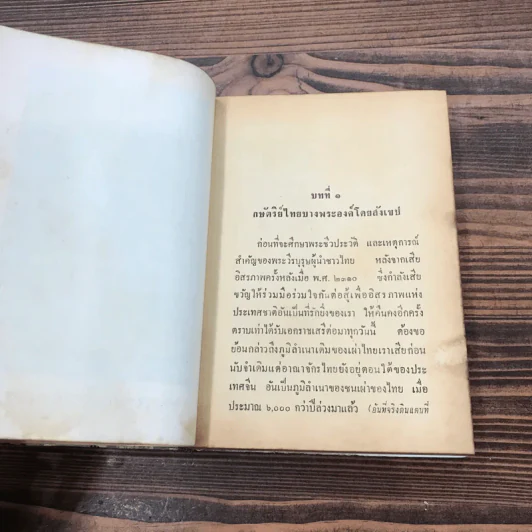 บทที่ ๑
กษัตริย์ไทยบางพระองค์โดยสังเขป
ก่อนที่จะศึกษาพระชีวประวัติ และเหตุการณ์
สำคัญของพระวีรบุรุษผู้นำชาวไทย หลังจากเสีย
อิสรภาพครั้งหลังเมื่อ พ.ศ. ๒๓๑๐ ซึ่งกำลังเสีย
ขวัญให้ร่วมมือร่วมใจกันต่อสู้เพื่ออิสรภาพแห่ง
ประเทศชาติอันเป็นที่รักยิ่งของเรา ให้คืนคงอีกครั้ง
ตราบเท่าได้รับเอกราชเสรีต่อมาทุกวันนี้ ต้องขอ
ย้อนกล่าวถึงภูมิลำเนาเดิมของเผ่าไทยเราเสียก่อน
นับจำเดิมแต่อาณาจักรไทยยังอยู่ตอนใต้ของประ
เทศจีน อันเป็นภูมิลำเนาของชนเผ่าของไทย เมื่อ
ประมาณ ๖,๐๐๐ กว่าปีล่วงมาแล้ว (อันที่จริงดินแดนที่